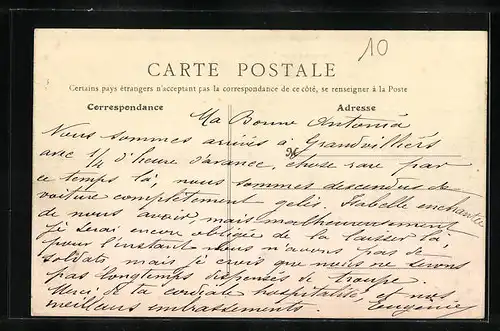 10
CARTE POSTALE
Certains pays étrangers n'acceptant pas la correspondance de ce côté, se renseigner à la Poste
Correspondance
Adresse
Ma Bonne Antonia
Nous sommes arrivés à Grandvilliers
avec 1/4 d'heure d'avance, chose rare par
ce temps là. nous sommes descendus de
voiture complètement gelés. Isabelle enchantée
de nous avoir mais malheureusement
je serai encore obligée de la laisser là,
pour l'instant nous n'avons pas de
soldats mais je crois que nous ne serons
pas longtemps dispensés de troupe.
Merci de ta cordiale hospitalité et nos
meilleurs embrassements. Eugénie